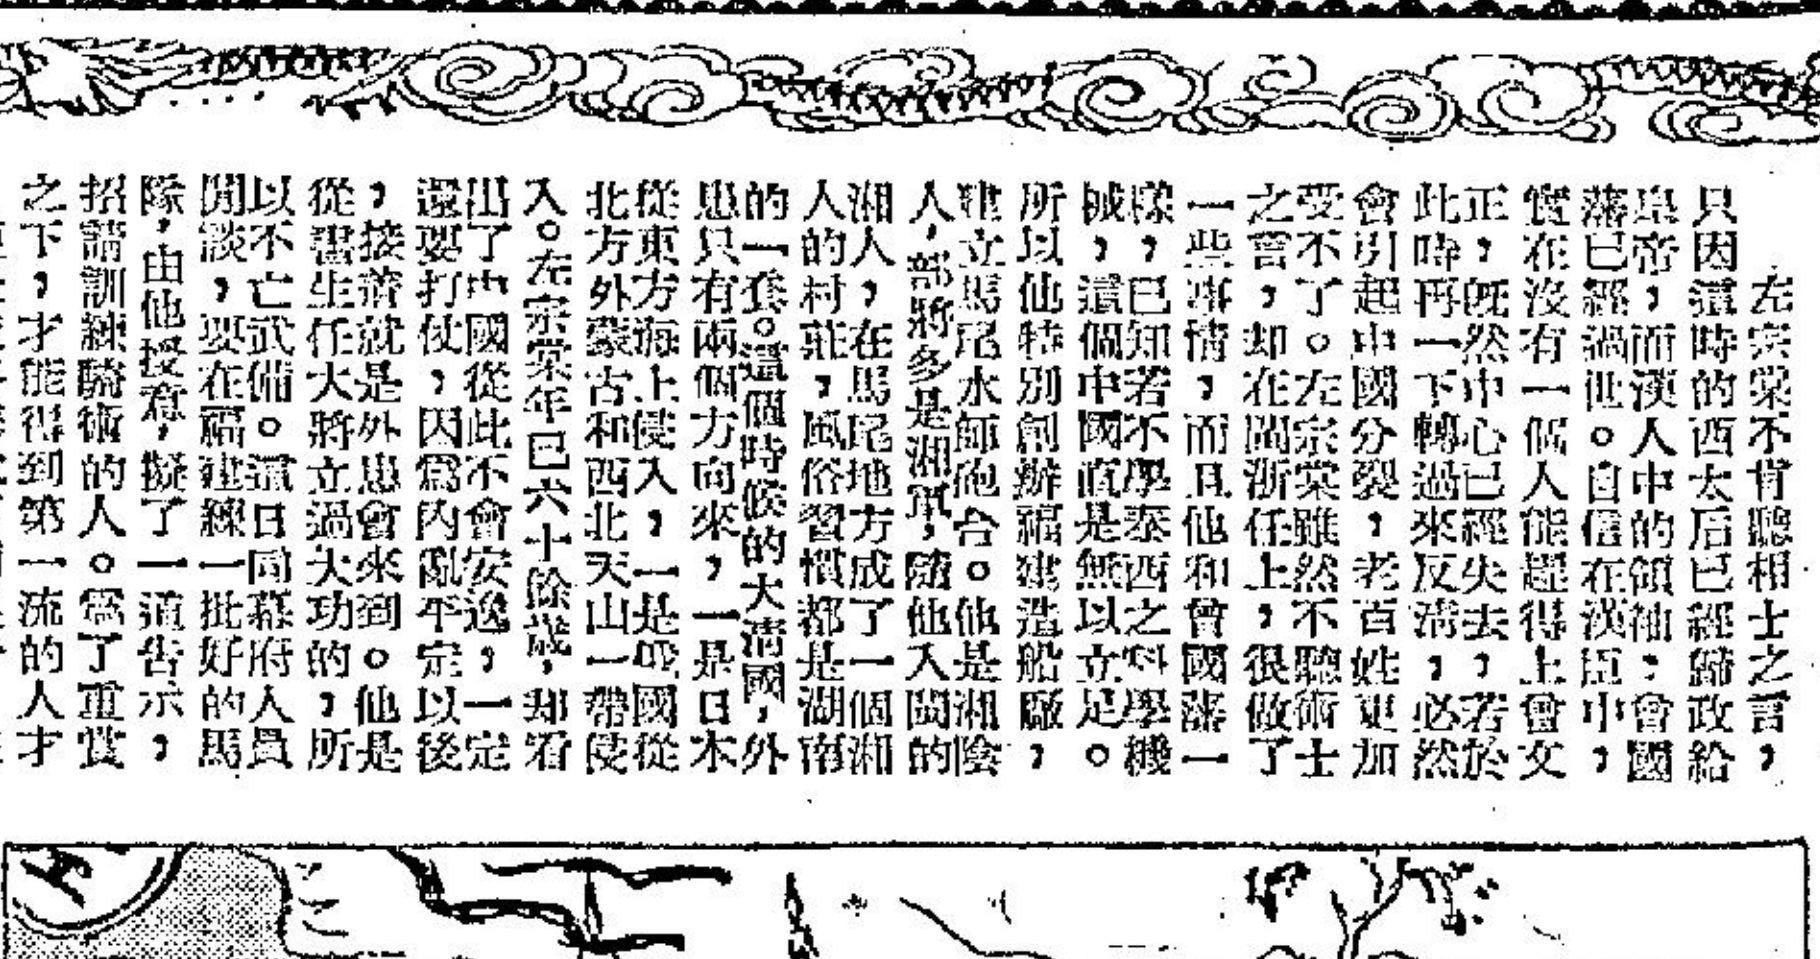 左宗棠不肯聽相士之言，
只因這時的西太后已經歸政給
皇帝，而漢人中的領袖，曾國
藩已經過世。自信在漢臣中，
實在沒有一個人能趕得上曾文
正，旣然中心已經失去，若於
此時再一下轉過來反淸，必然
會引起中國分裂，老百姓更加
受不了。左宗棠雖然不聽術士
之言，却在閩浙任上，很做了
一些事情，而且他和曾國藩一
樣，已知若不學泰西之科學機
械，這個中國直是無以立足。
所以他特別創辦福建造船廠，
建立馬尾水師砲台。他是湘陰
人，部將多是湘軍，隨他入閩的
湘人，在馬尾地方成了一個湘
人的村莊，風俗習慣都是湖南
的一套。這個時候的大淸國，外
患只有兩個方向來，一是日本
從東方海上侵入，一是俄國從
北方外蒙古和西北天山一帶侵
入。左宗棠年已六十餘歲，却看
出了中國從此不會安逸，一定
還要打仗，因爲內亂平定以後
，接着就是外患會來到。他是
從書生任大將立過大功的，所
以不亡武備。這日同幕府人員
閒談，要在福建練一批好的馬
隊，由他授意，擬了一道告示，
招請訓練騎術的人。爲了重賞
之下，才能得到第一流的人才